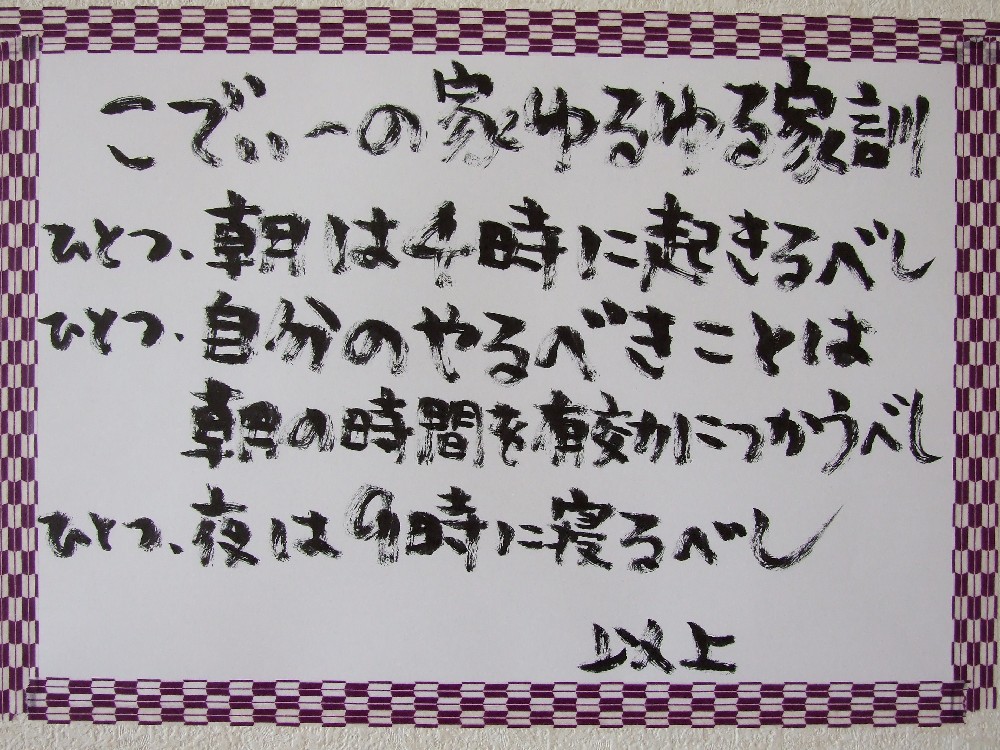 こでぃーの家ゆるゆる家訓
ひとつ、朝は4時に起きるべし
ひとつ、自分のやるべきことは
朝の時間を有効につかうべし
ひとつ、夜は9時に寝るべし
以上